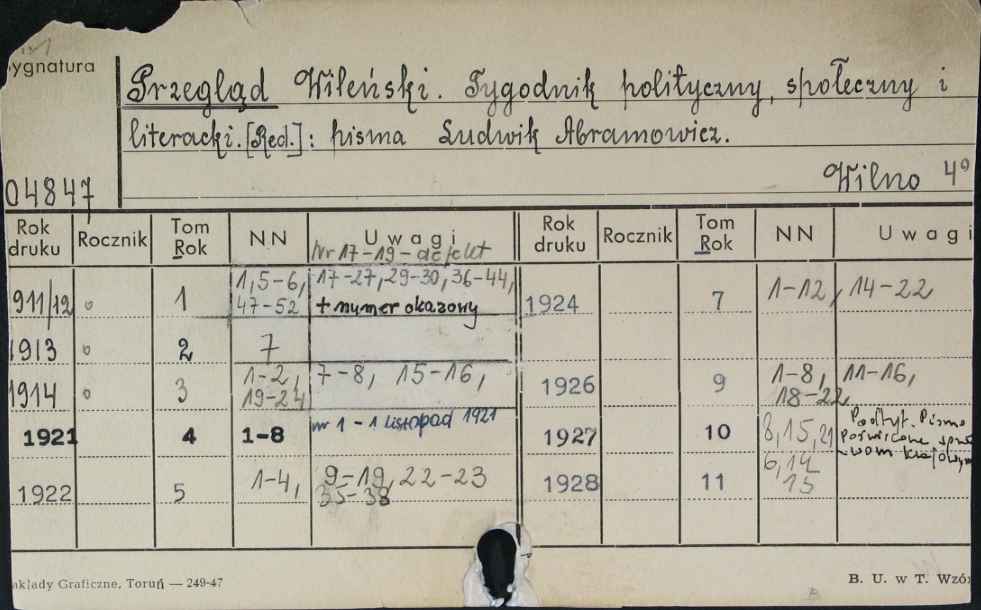 ygnatura
Przegląd Wileński. Tygodnik polityczny, społeczny i
literacki. [Red.]: pisma Ludwik Abramowicz.
04847
Wilno 4°
Rok druku Rocznik Tom Rok NN Uwagi Rok druku Rocznik Tom Rok NN Uwagi
Nr 17-19 - defekt
911/12 1 1, 5-6, 17-27, 29-30, 36-44, 1924 7 1-12, 14-22
47-52 + numer okazowy
1913 2 7
1914 3 1-2, 7-8, 15-16, 1926 9 1-8, 11-16,
19-24 18-22
1921 4 1-8 nr 1 - 1 listopad 1921 1927 10 8, 15, 21 Podtyt. Pismo
poświęcone spra
wom krajowym
1922 5 1-4, 9-19, 22-23 1928 11 6, 14
35-38 15
akłady Graficzne, Toruń — 249-47
B. U. w T. Wzó